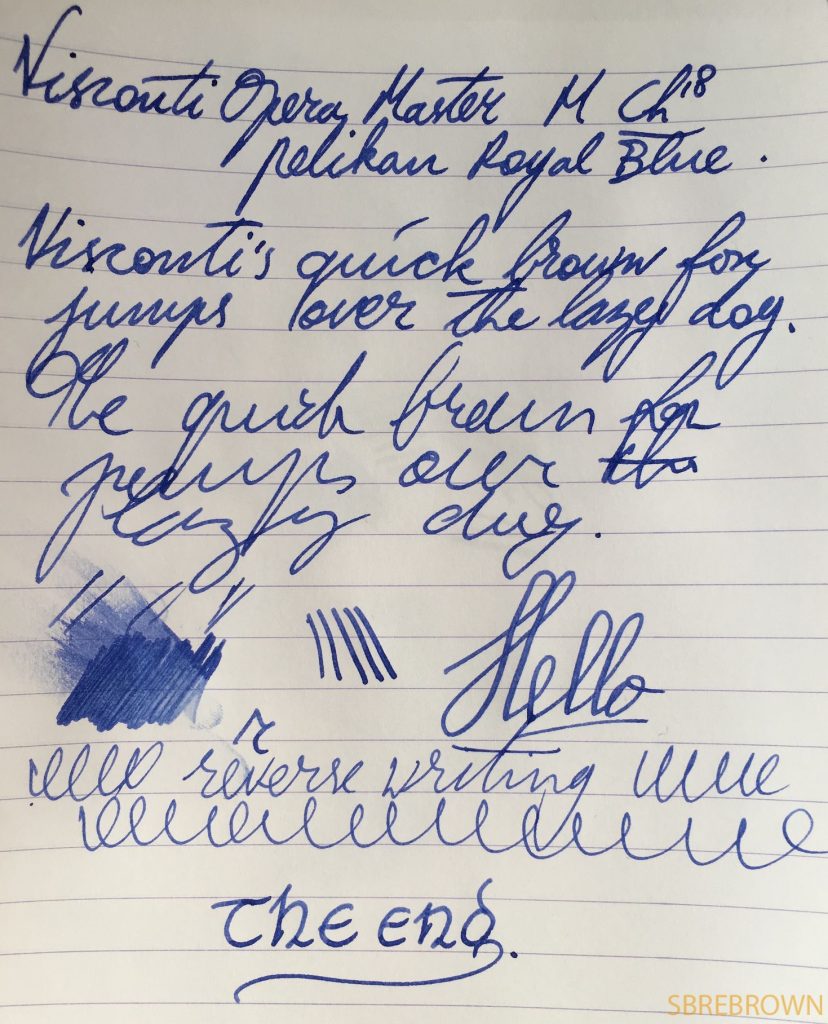 Visconti Opera Master M Ch'18
Pelikan Royal Blue.
Visconti's quick brown fox
jumps over the lazy dog.
The quick brown fox
jumps over the
lazy dog.
Hello
r
reverse writing
The end.
SBREBROWN